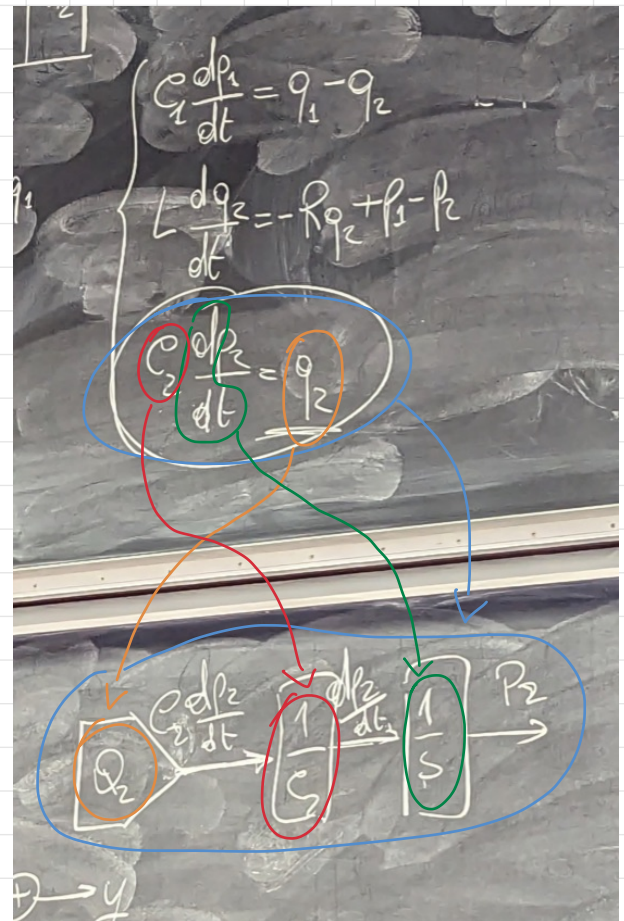 C₁ dp₁/dt = q₁ - q₂
q₁
L dq₂/dt = -Rq₂ + p₁ - p₂
C₂ dp₂/dt = q₂
Q₂ C₂ dp₂/dt 1/C₂ dp₂/dt 1/S P₂
+ → y